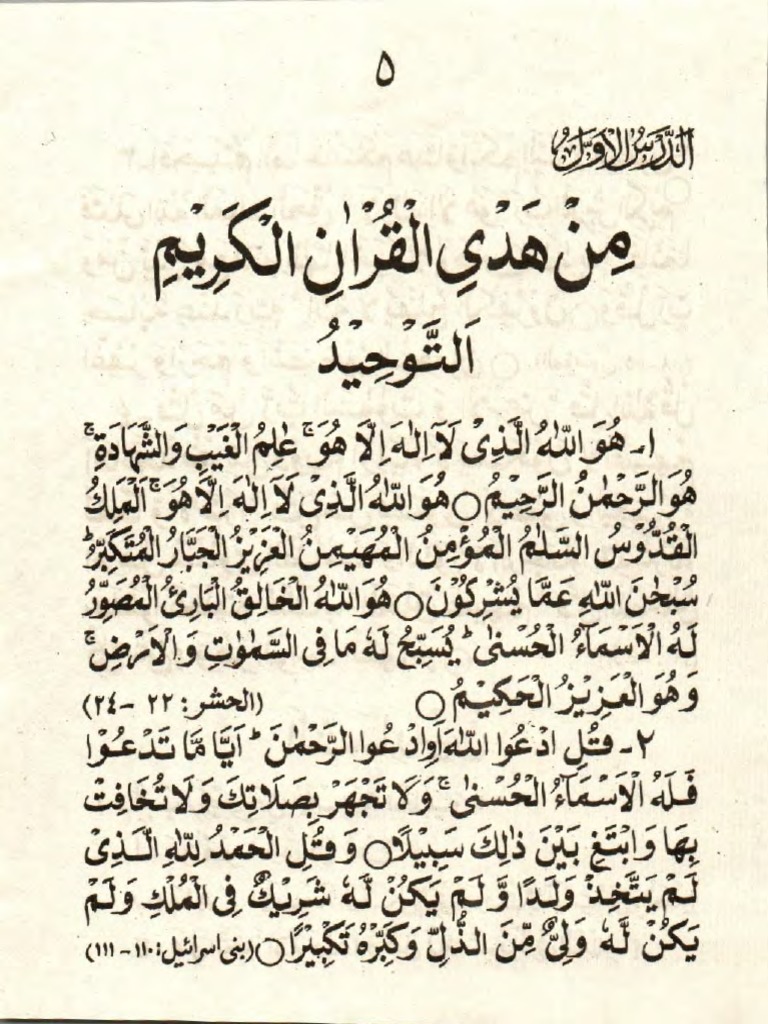 ۵
الدَّرْسُ الْاَوَّلُ
مِنْ هَدْيِ الْقُرْاٰنِ الْكَرِيْمِ
اَلتَّوْحِيْدُ
۱ـ هُوَ اللّٰهُ الَّذِىْ لَآ اِلٰهَ اِلَّا هُوَ ۚ عٰلِمُ الْغَيْبِ وَالشَّهَادَةِ ۚ
هُوَ الرَّحْمٰنُ الرَّحِيْمُ ○ هُوَ اللّٰهُ الَّذِىْ لَآ اِلٰهَ اِلَّا هُوَ ۚ اَلْمَلِكُ
الْقُدُّوْسُ السَّلٰمُ الْمُؤْمِنُ الْمُهَيْمِنُ الْعَزِيْزُ الْجَبَّارُ الْمُتَكَبِّرُ ؕ
سُبْحٰنَ اللّٰهِ عَمَّا يُشْرِكُوْنَ ○ هُوَ اللّٰهُ الْخَالِقُ الْبَارِئُ الْمُصَوِّرُ
لَهُ الْاَسْمَآءُ الْحُسْنٰى ؕ يُسَبِّحُ لَهٗ مَا فِى السَّمٰوٰتِ وَالْاَرْضِ ۚ
وَهُوَ الْعَزِيْزُ الْحَكِيْمُ ○ (الحشر: ۲۲ - ۲٤)
۲ـ قُلِ ادْعُوا اللّٰهَ اَوِادْعُوا الرَّحْمٰنَ ؕ اَيًّا مَّا تَدْعُوْا
فَلَهُ الْاَسْمَآءُ الْحُسْنٰى ۚ وَلَا تَجْهَرْ بِصَلَاتِكَ وَلَا تُخَافِتْ
بِهَا وَابْتَغِ بَيْنَ ذٰلِكَ سَبِيْلًا ○ وَقُلِ الْحَمْدُ لِلّٰهِ الَّذِىْ
لَمْ يَتَّخِذْ وَلَدًا وَّلَمْ يَكُنْ لَّهٗ شَرِيْكٌ فِى الْمُلْكِ وَلَمْ
يَكُنْ لَّهٗ وَلِىٌّ مِّنَ الذُّلِّ وَكَبِّرْهُ تَكْبِيْرًا ○ (بنى اسرائيل: ۱۱۰ - ۱۱۱)